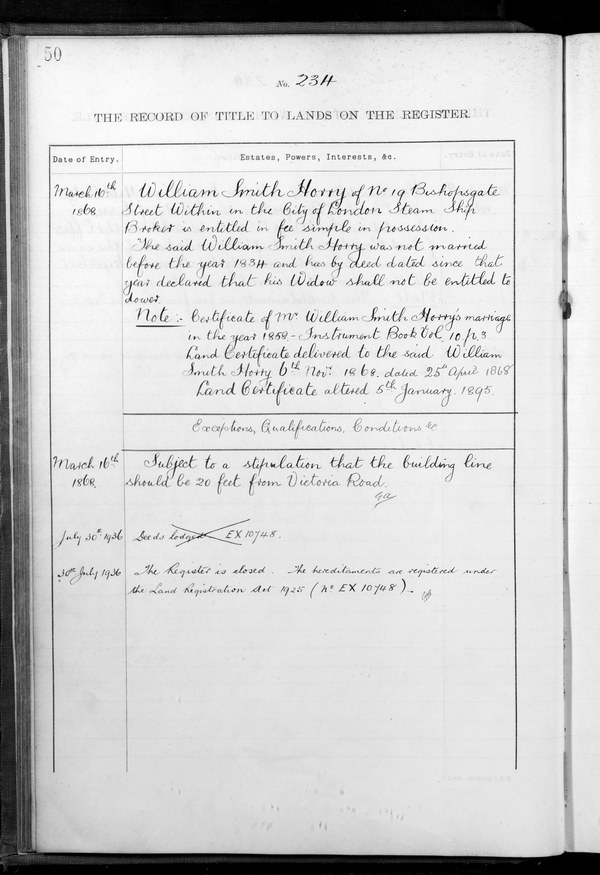 50
No. 234
THE RECORD OF TITLE TO LANDS ON THE REGISTER.
Date of Entry.
Estates, Powers, Interests, &c.
March 16th
1868
William Smith Horry of No 19 Bishopsgate
Street Within in the City of London Steam Ship
Broker is entitled in fee simple in possession.
The said William Smith Horry was not married
before the year 1834 and has by deed dated since that
year declared that his Widow shall not be entitled to
dower.
Note :- Certificate of Mr. William Smith Horry's marriage
in the year 1858 - Instrument Book Vol. 10 p. 3
Land Certificate delivered to the said William
Smith Horry 6th Novr. 1868. dated 25th April 1868
Land Certificate altered 5th January. 1895.
Exceptions, Qualifications, Conditions &c
March 16th
1868.
Subject to a stipulation that the building line
should be 20 feet from Victoria Road.
July 30th 1936
Deeds lodged EX 10748.
30th July 1936
The Register is closed. The hereditaments are registered under
the Land Registration Act 1925 (No EX 10748).